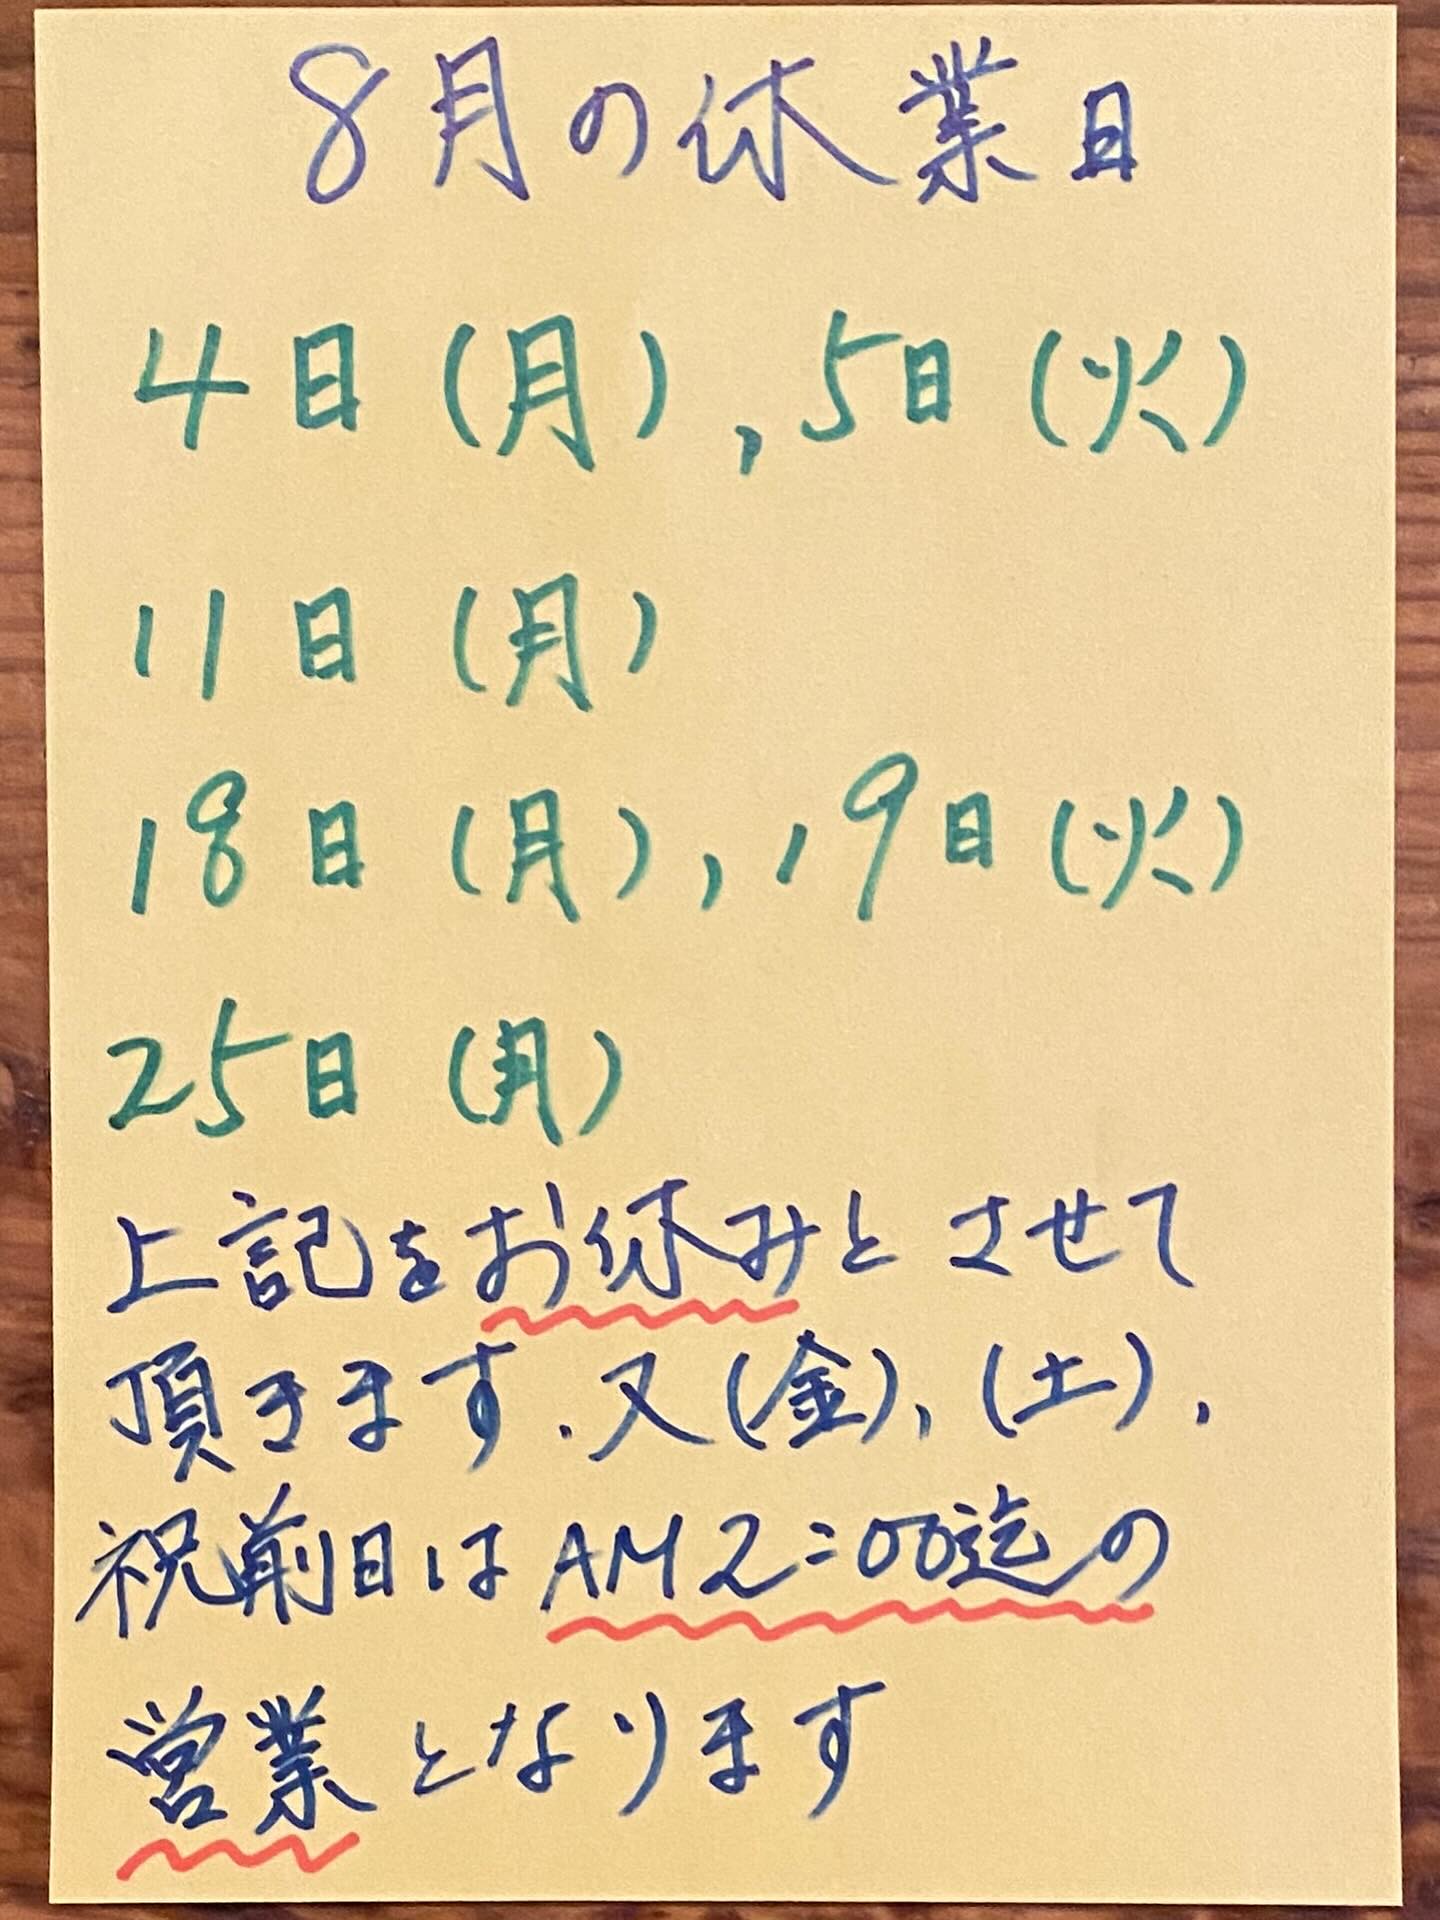 8月の休業日
4日(月),5日(火)
11日(月)
18日(月),19日(火)
25日(月)
上記をお休みとさせて
頂きます.又(金),(土),
祝前日はAM2:00迄の
営業となります